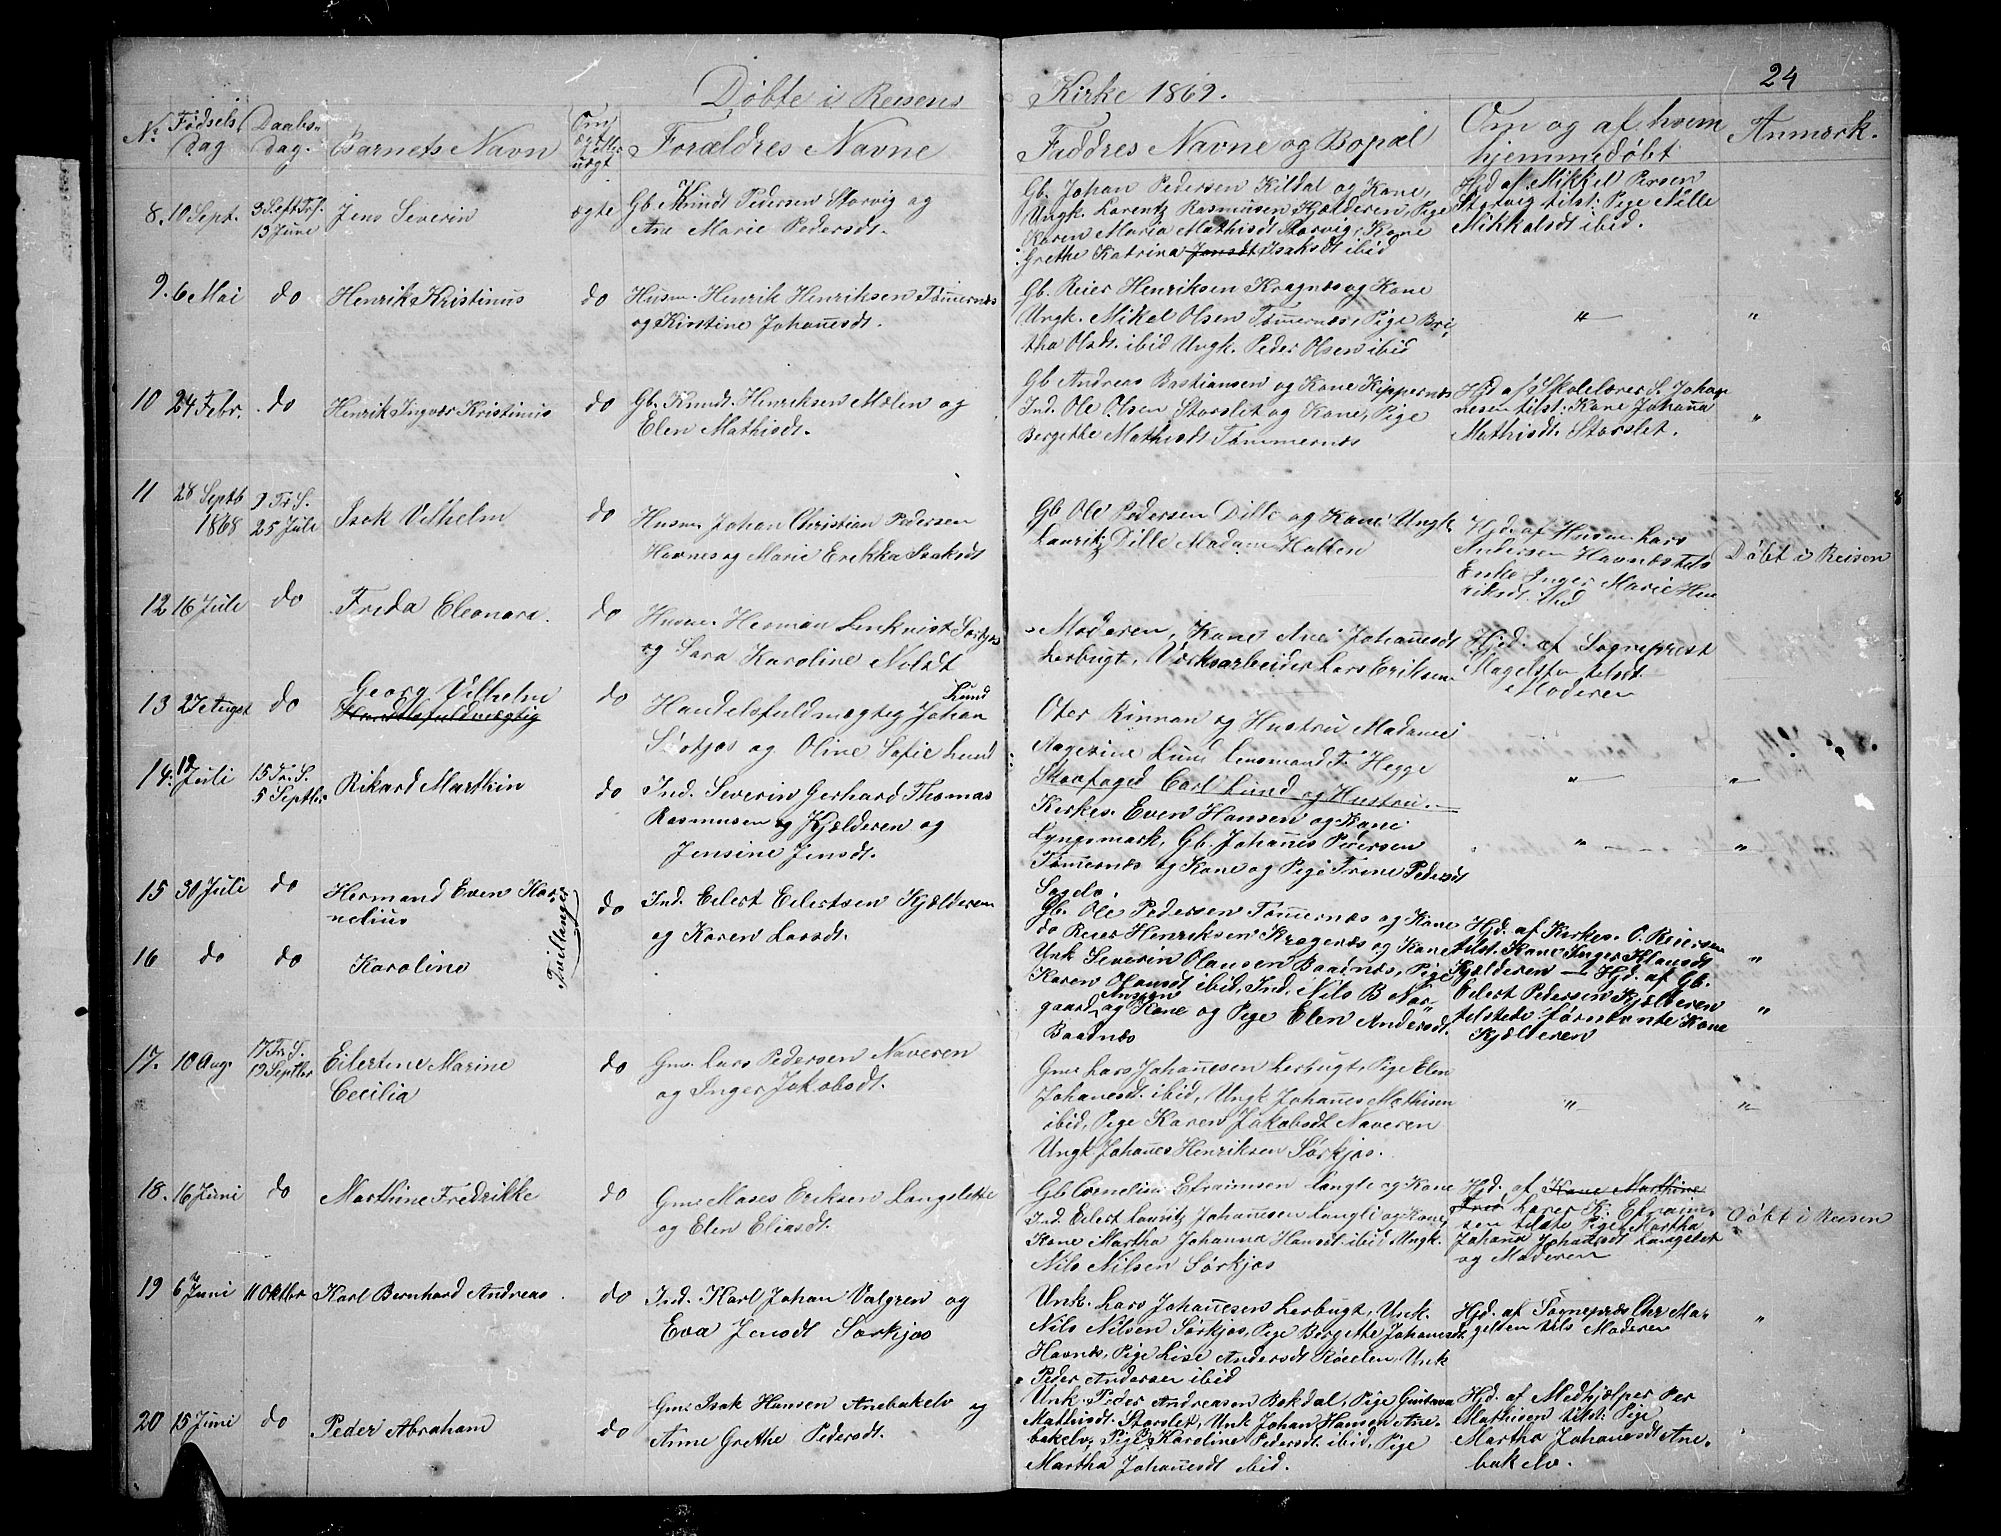 Døbte i Reisens Kirke 1869.
24
No Fødsels dag
Daabs dag.
Barnets Navn
Om ægte eller uægt
Forældres Navne
Faddres Navne og Bopæl
Om og af hvem hjemmedøbt
Anmærk.
8. 10 Sept. 3 S eft Trf. 13 June
Jens Severin
ægte
Gb. Knudt Pedersen Storvig og
Ane Marie Pedersdt.
Gb. Johan Pedersen Kildal og Kone,
Ungk. Lorentz Rasmusen Kjælderen, Pige
Karen Maria Mathisdt Storvig, Kone
Grethe Katrina Jensdt Isaksdt ibid
Hjd af Mikkel Persen
Storvig tilst: Pige Nille
Mikkalsdt ibid.
9. 6 Mai do
Henrik Kristinus
do
Husm. Henrik Henriksen Tømernæs
og Kirstine Johanesdt.
Gb. Reier Henriksen Kragnæs og Kone
Ungk. Mikel Olsen Tømernæs, Pige Bri-
tha Olsdt. ibid Ungk. Peder Olsen ibid
"
"
10 24 Febr. do
Henrik Ingvær Kristinus
do
Gb. Knud Henriksen Mælen og
Elen Mathisdt.
Gb Andreas Bastiansen og Kone Kippernæs
Ind. Ole Olsen Storslet og Kone, Pige
Bergethe Mathisdt Tømmernæs
Hjd af Skolelærer S. Johan
nesen tilst: Kone Johana
Mathisdt. Storslet.
"
11 28 Septb 1868 9 Tr. S. 25 Juli
Isak Vilhelm
do
Husm. Johan Christian Pedersen
Havnes og Marie Erikka Isaksdt
Gb Ole Pedersen Dille og Kone Ungk.
Lauritz Dille Madam Holten
Hjd. af Husm. Lars
Andersen Havnæs tils
Enke Inger Marie Hen
riksdt. ibid
Døbt i Reisen
12 16 Juli do
Freda Eleonora.
do
Husm. Herman Lenkvist Sørkjos
og Sara Karoline Nolsdt
Moderen, Kone Ane Johanesdt
Lerbugt, Værksarbeider Lars Eriksen
Hjd. af Sogneprest
Magelsen tilst
Moderen
13 27 Augst do
Georg Vilhelm
Handelsfuldmægtig
do
Handelsfuldmægtig Johan Lund
Sørkjos og Oline Sofie Lund
Oter Rinnan og Hustru Madame
Aagesine Lund Lensmand F. Hegge
Skovfoged Carl Lund og Hustru.
"
"
14. 12 Juli 15 Tr. S. 5 Septbr
Rikard Marthin
do
Ind. Severin Gerhard Thomas
Rasmusen og Kjælderen og
Jensine Jensdt.
Kirkes. Even Hansen og Kone
Lyngsmark, Gb. Johanes Pedersen
Tømernæs og Kone og Pige Trine Pedersdt
Sogelv.
"
"
15 30 Juli do
Hermand Even Kor-
nelius
Tvillinger
do
Ind. Eilert Eilertsen Kjælderen
og Karen Larsdt.
Gb. Ole Pedersen Tømernæs og Kone
do Reier Henriksen Kragenæs og Kone
Unk Severin Olausen Baadnæs, Pige
Karen Olausdt ibid, Ind. Nils B Nor-
gaard, Ansjøn og Kone og Pige Elen Andersdt.
Baadnæs
Hjd. af Kirkes. O. Reiersen
tilst. Kone Inger Klausdt
Kjælderen — Hjd. af Gb.
Eilert Pedersen Kjælderen
tilstede førnævnte Kone
Kjælderen
"
"
16 do do
Karoline
17. 10 Aug. 17 Tr. S. 19 Septbr
Eilertine Marine
Cecilia
do
Gm. Lars Pedersen Naveren
og Inger Jakobsdt.
Gm. Lars Johanesen Lerbugt, Pige Elen
Johanesdt. ibid, Ungk Johanes Mathisen
ibid, Pige Karen Jakobsdt Naveren
Ungk Johanes Henriksen Sørkjos.
"
"
18. 16 Juni do
Marthine Fredrikke
do
Gm. Moses Eriksen Langslette
og Elen Eliasdt.
Gb Cornelius Efraimsen Langli og Kone
Ind. Eilert Lauritz Johanesen Langli og Kone,
Kone Martha Johanna Hansdt ibid Ungk.
Nils Nilsen Sørkjos
Hjd. af Kone Marthine
Lærer K: Efraim-
sen tilste Pige Martha
Johana Johansdt Langslet
og Moderen
Døbt i Reisen
19 6 Juni 11 Oktbr
Karl Bernhard Andreas.
do
Ind. Karl Johan Valgren og
Eva Jensdt Sørkjos
Unk. Lars Johanesen Lerbugt, Unk.
Nils Nilsen Sørkjos, Pige Bergette Johanesdt.
Havnæs, Pige Lise Andersdt Røielen, Unk
Peder Andersen ibid
Hjd. af Sognepræs Chr Ma-
gelsen tils Moderen
"
20 15 Juni do
Peder Abraham
do
Gm. Isak Hansen Anebakelv og
Anne Grethe Pedersdt.
Unk. Peder Andreasen Bakdal, Pige Gustava
Mathisdt. Storslet, Unk Johan Hansen Ane-
bakelv, Pige Karoline Pedersdt. ibid, Pige
Martha Johanesdt ibid.
Hjd. af Medhjælper Per
Mathisen tilst: Pige
Martha Johanesdt Ane-
bakelv.